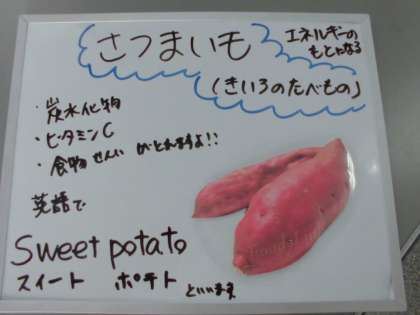 さつまいも
エネルギーの
もとになる
(きいろのたべもの)
・炭水化物
・ビタミンC
・食物せんい がとれますよ!!
英語で
Sweet potato
スイート ポテト といいます